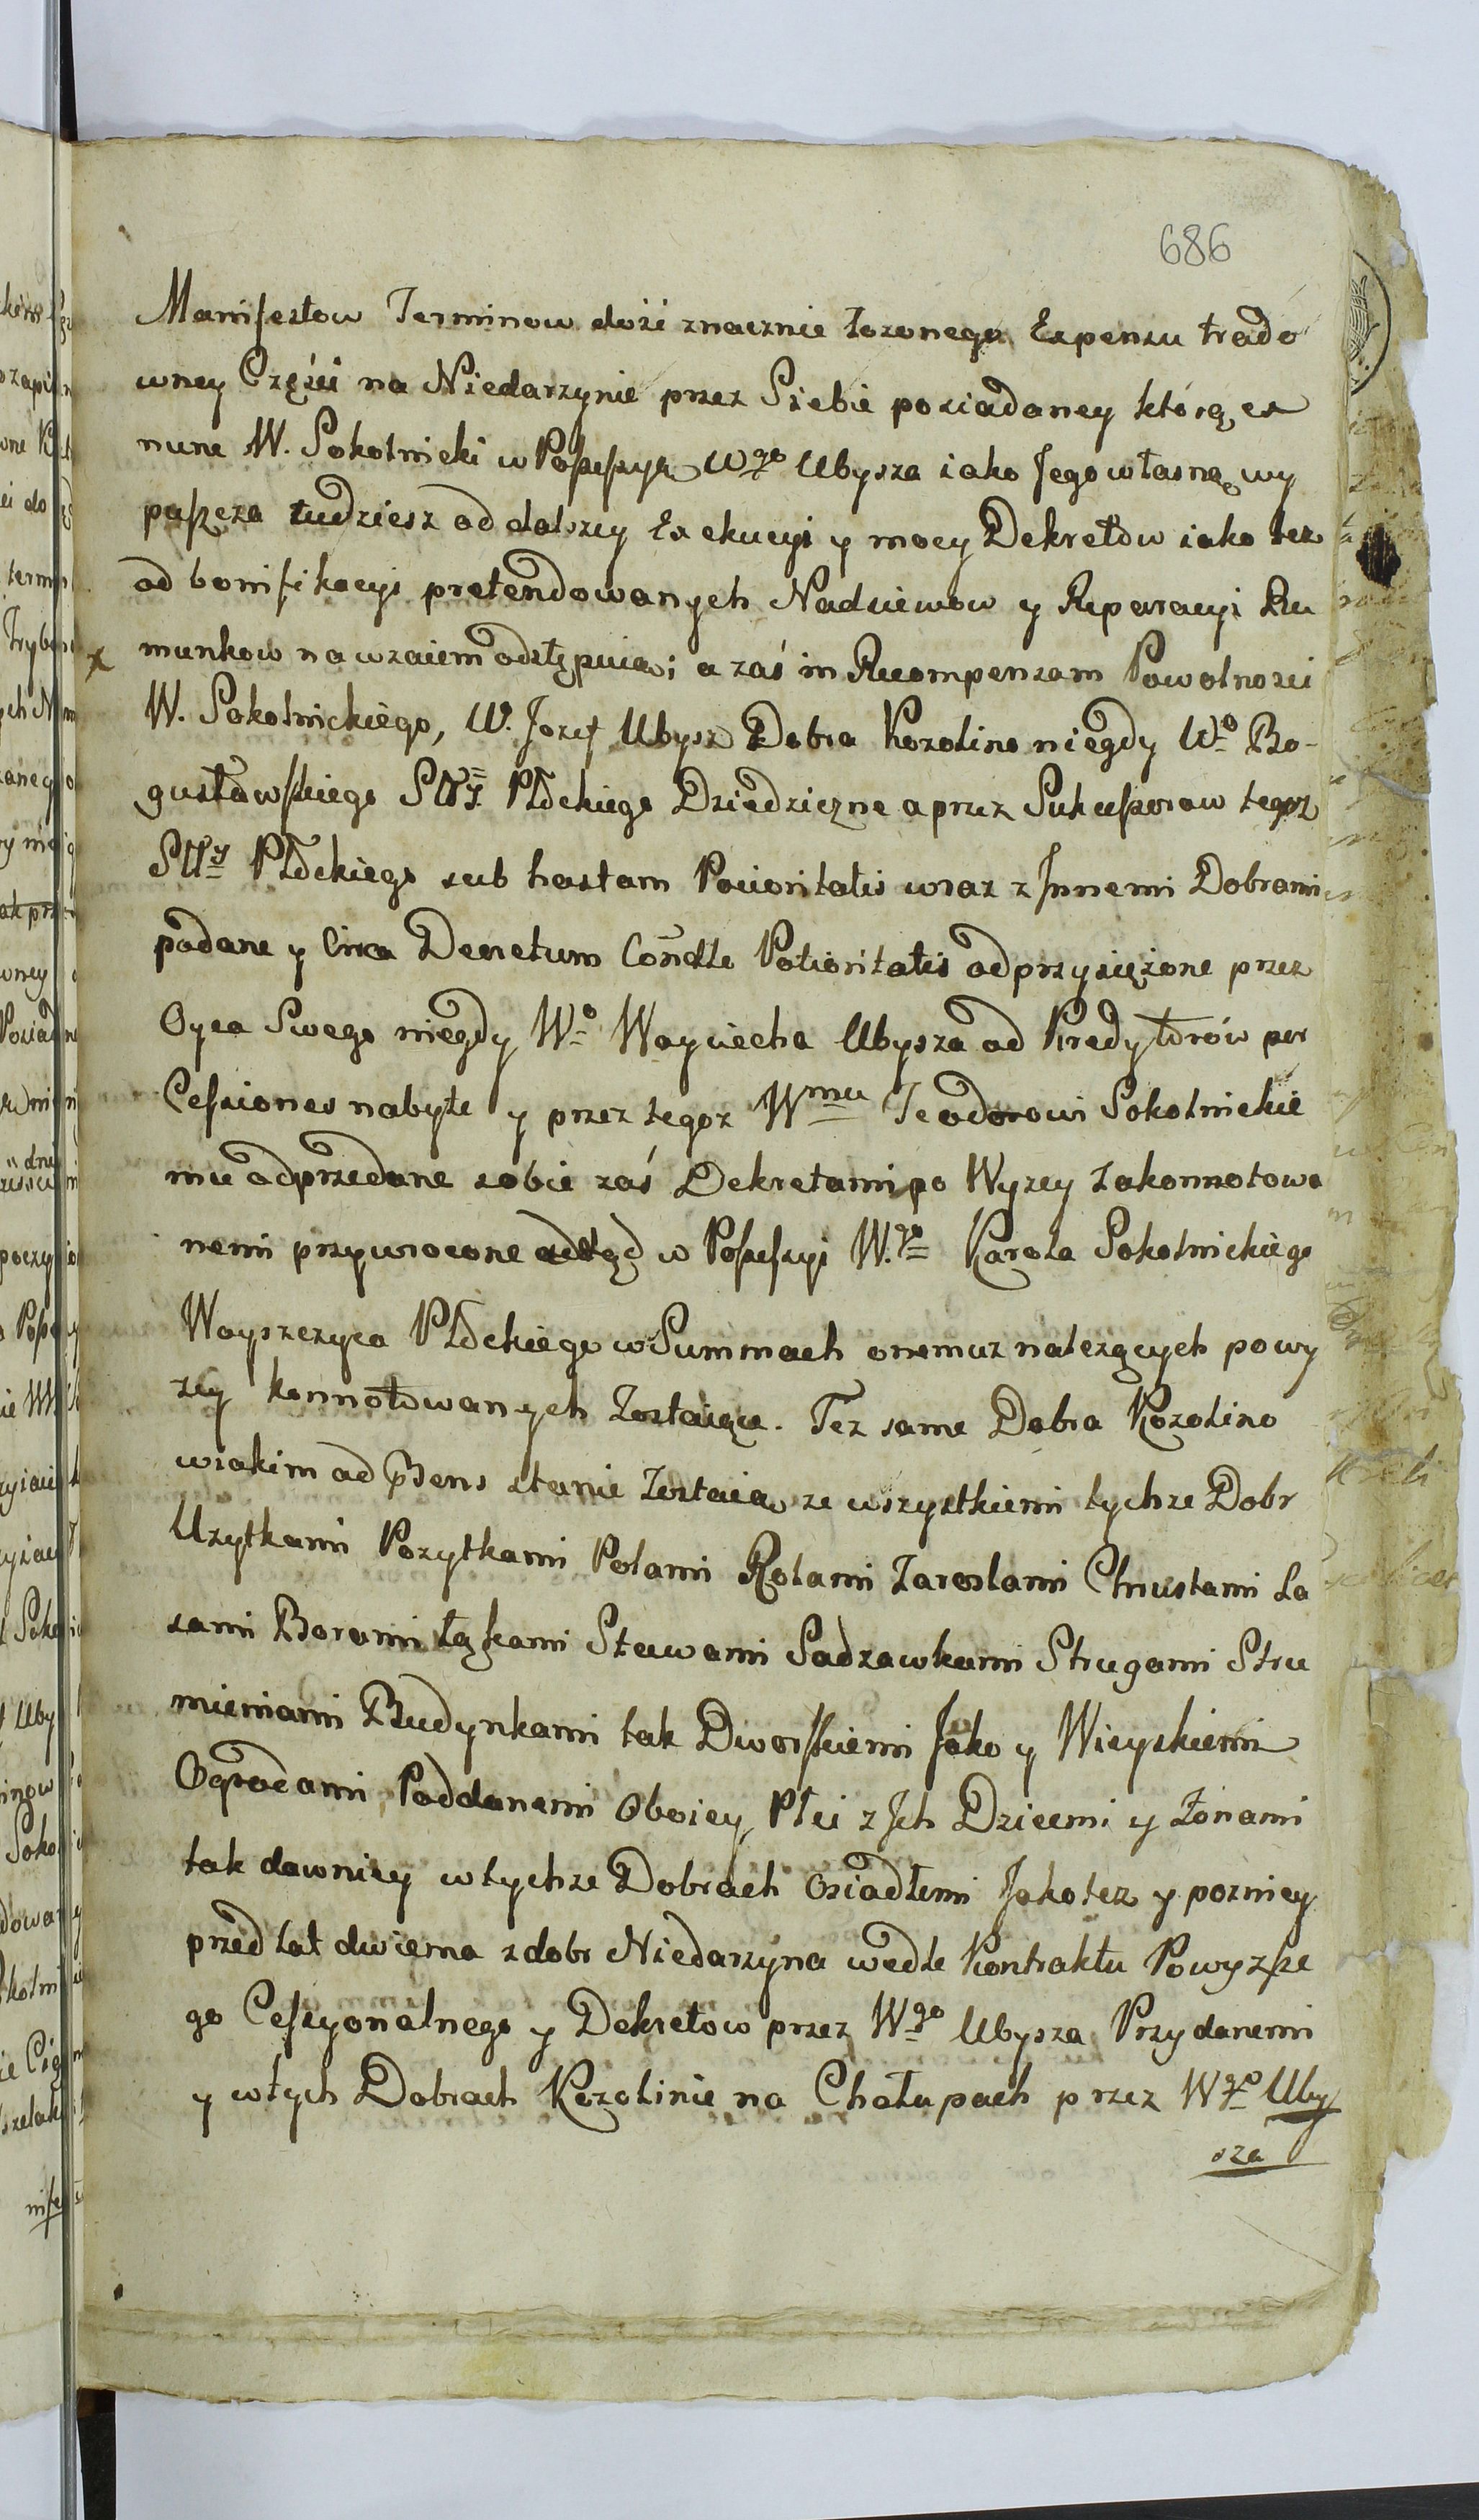 686
Manifestow Terminow dość znacznie łozonego Expensu trado
wney Części na Niedarzynie przez Siebie posiadaney którą ex
nunc W. Sokolnicki w Possessyą Wgo Ubysza iako Jego własną wy
paszcza tudziesz od dalszey Exekucyi y mocy Dekretów iako tez
od bonifikacyi pretendowanych Nadsiewow y Reperacyi Ru
x munkow nawzaiem odstępuią; a zaś in Recompensam Powolności
W. Sokolnickiego, W. Jozef Ubysz Dobra Kozolino niegdy Wo Bo-
gusławskiego Stty Płockiego Dziedziczne a przez Sukcessorow tegoz
Stty Płockiego sub hastam Pocioritatis wraz z Jnnemi Dobrami
podane y Circa Decretum Condle Potioritatis odprzysiężone przez
Oyca Swego niegdy Wo Woyciecha Ubysza od Kredytorów per
Cessiones nabyte y przez tegoz Wmu Teodorowi Sokolnickie
mu odprzedane sobie zaś Dekretami po Wyzey zakonnotowa
nemi przywrocone odtąd w Possessyi W.go Karola Sokolnickiego
Woyszczyca Płockiego w Summach onemuz nalezących powy
zey konnotowanych Zostaiące. Tez same Dobra Kozolino
w iakim ad Praens stanie Zostaią ze wszystkiemi tychze Dobr
Uzytkami Pozytkami Polami Rolami Zaroslami Chrustami La
sami Borami Łąkami Stawami Sadzawkami Strugami Stru
mieniami Budynkami tak Dworskiemi Jako y Wieyskiemi
Ogrodami Poddanemi Oboiey Płci z Jch Dziećmi y Żonami
tak dawniey w tychze Dobrach Osiadłemi Jako tez y pozniey
przed lat dwiema z dobr Niedarzyna wedle Kontraktu Powyzsze
go Cessyonalnego y Dekretow przez Wgo Ubysza Przydanemi
y w tych Dobrach Kozolinie na Chałupach przez Wgo Uby
sza